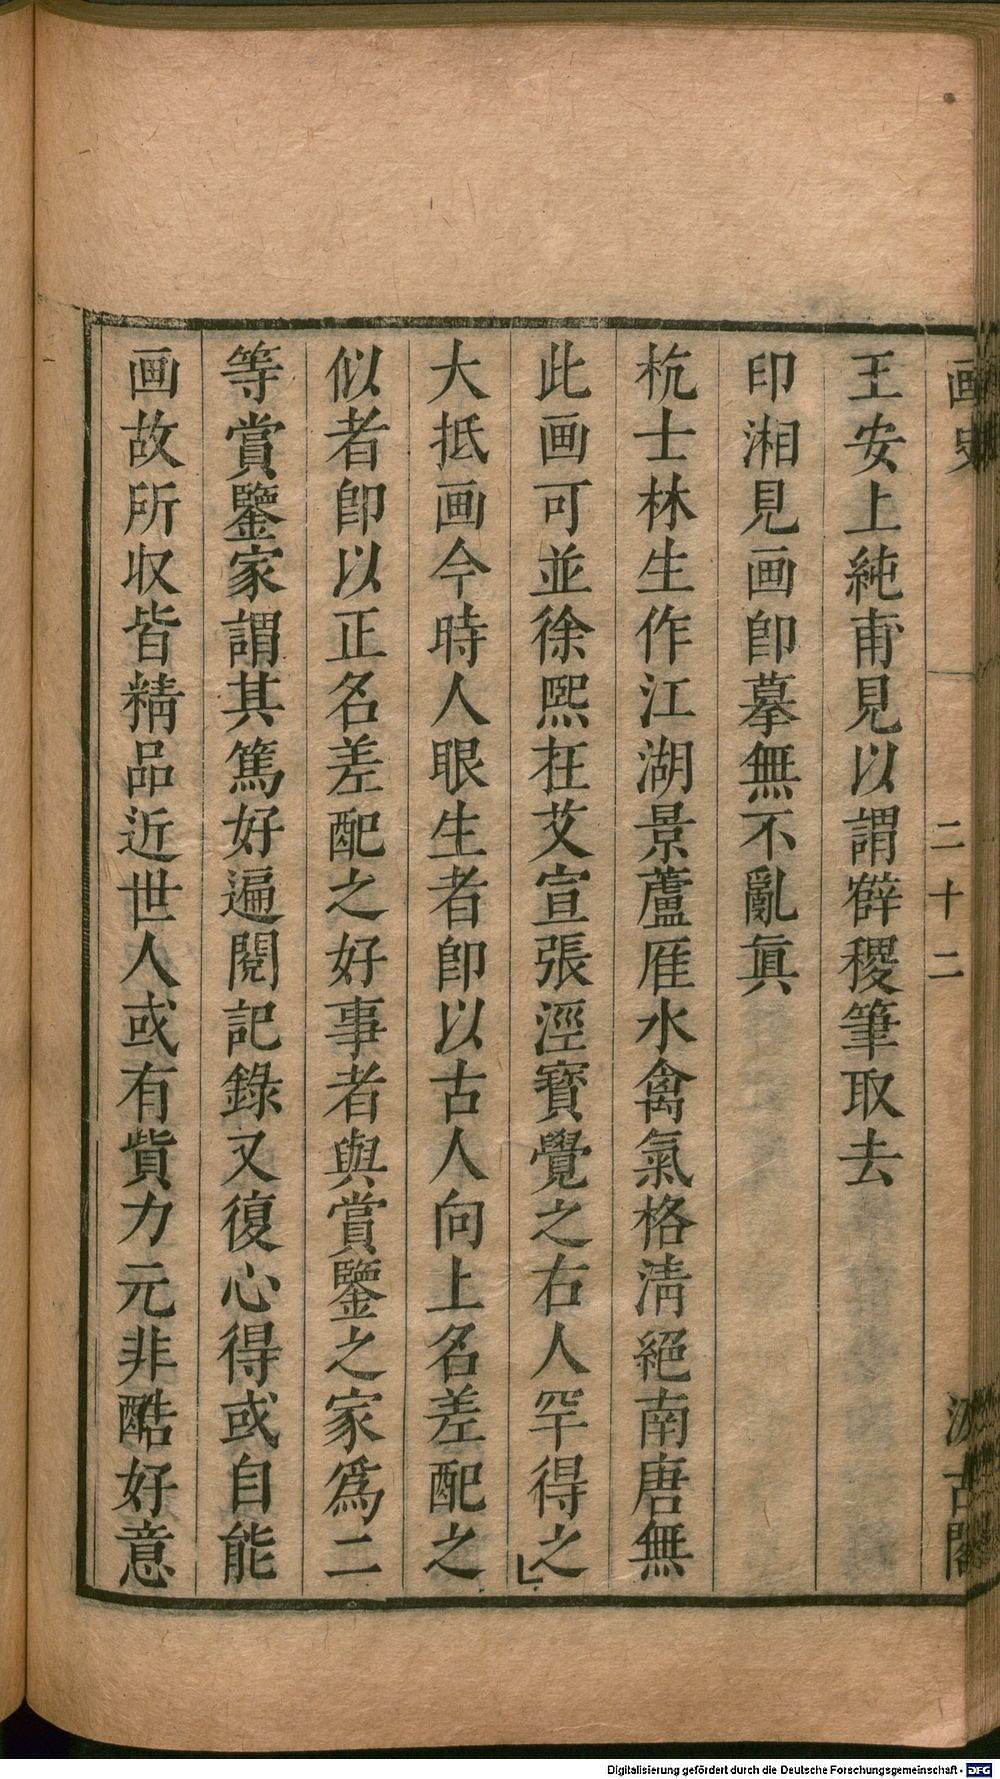 画史
二十二
汲古閣
王安上純甫見以謂薛稷筆取去
印湘見画卽摹無不亂眞
杭士林生作江湖景蘆雁水禽氣格淸絕南唐無
此画可並徐熙在艾宣張涇寶覺之右人罕得之
大抵画今時人眼生者卽以古人向上名差配之
似者卽以正名差配之好事者與賞鑒之家爲二
等賞鑒家謂其篤好遍閱記錄又復心得或自能
画故所収皆精品近世人或有貲力元非酷好意
Digitalisierung gefördert durch die Deutsche Forschungsgemeinschaft - DFG